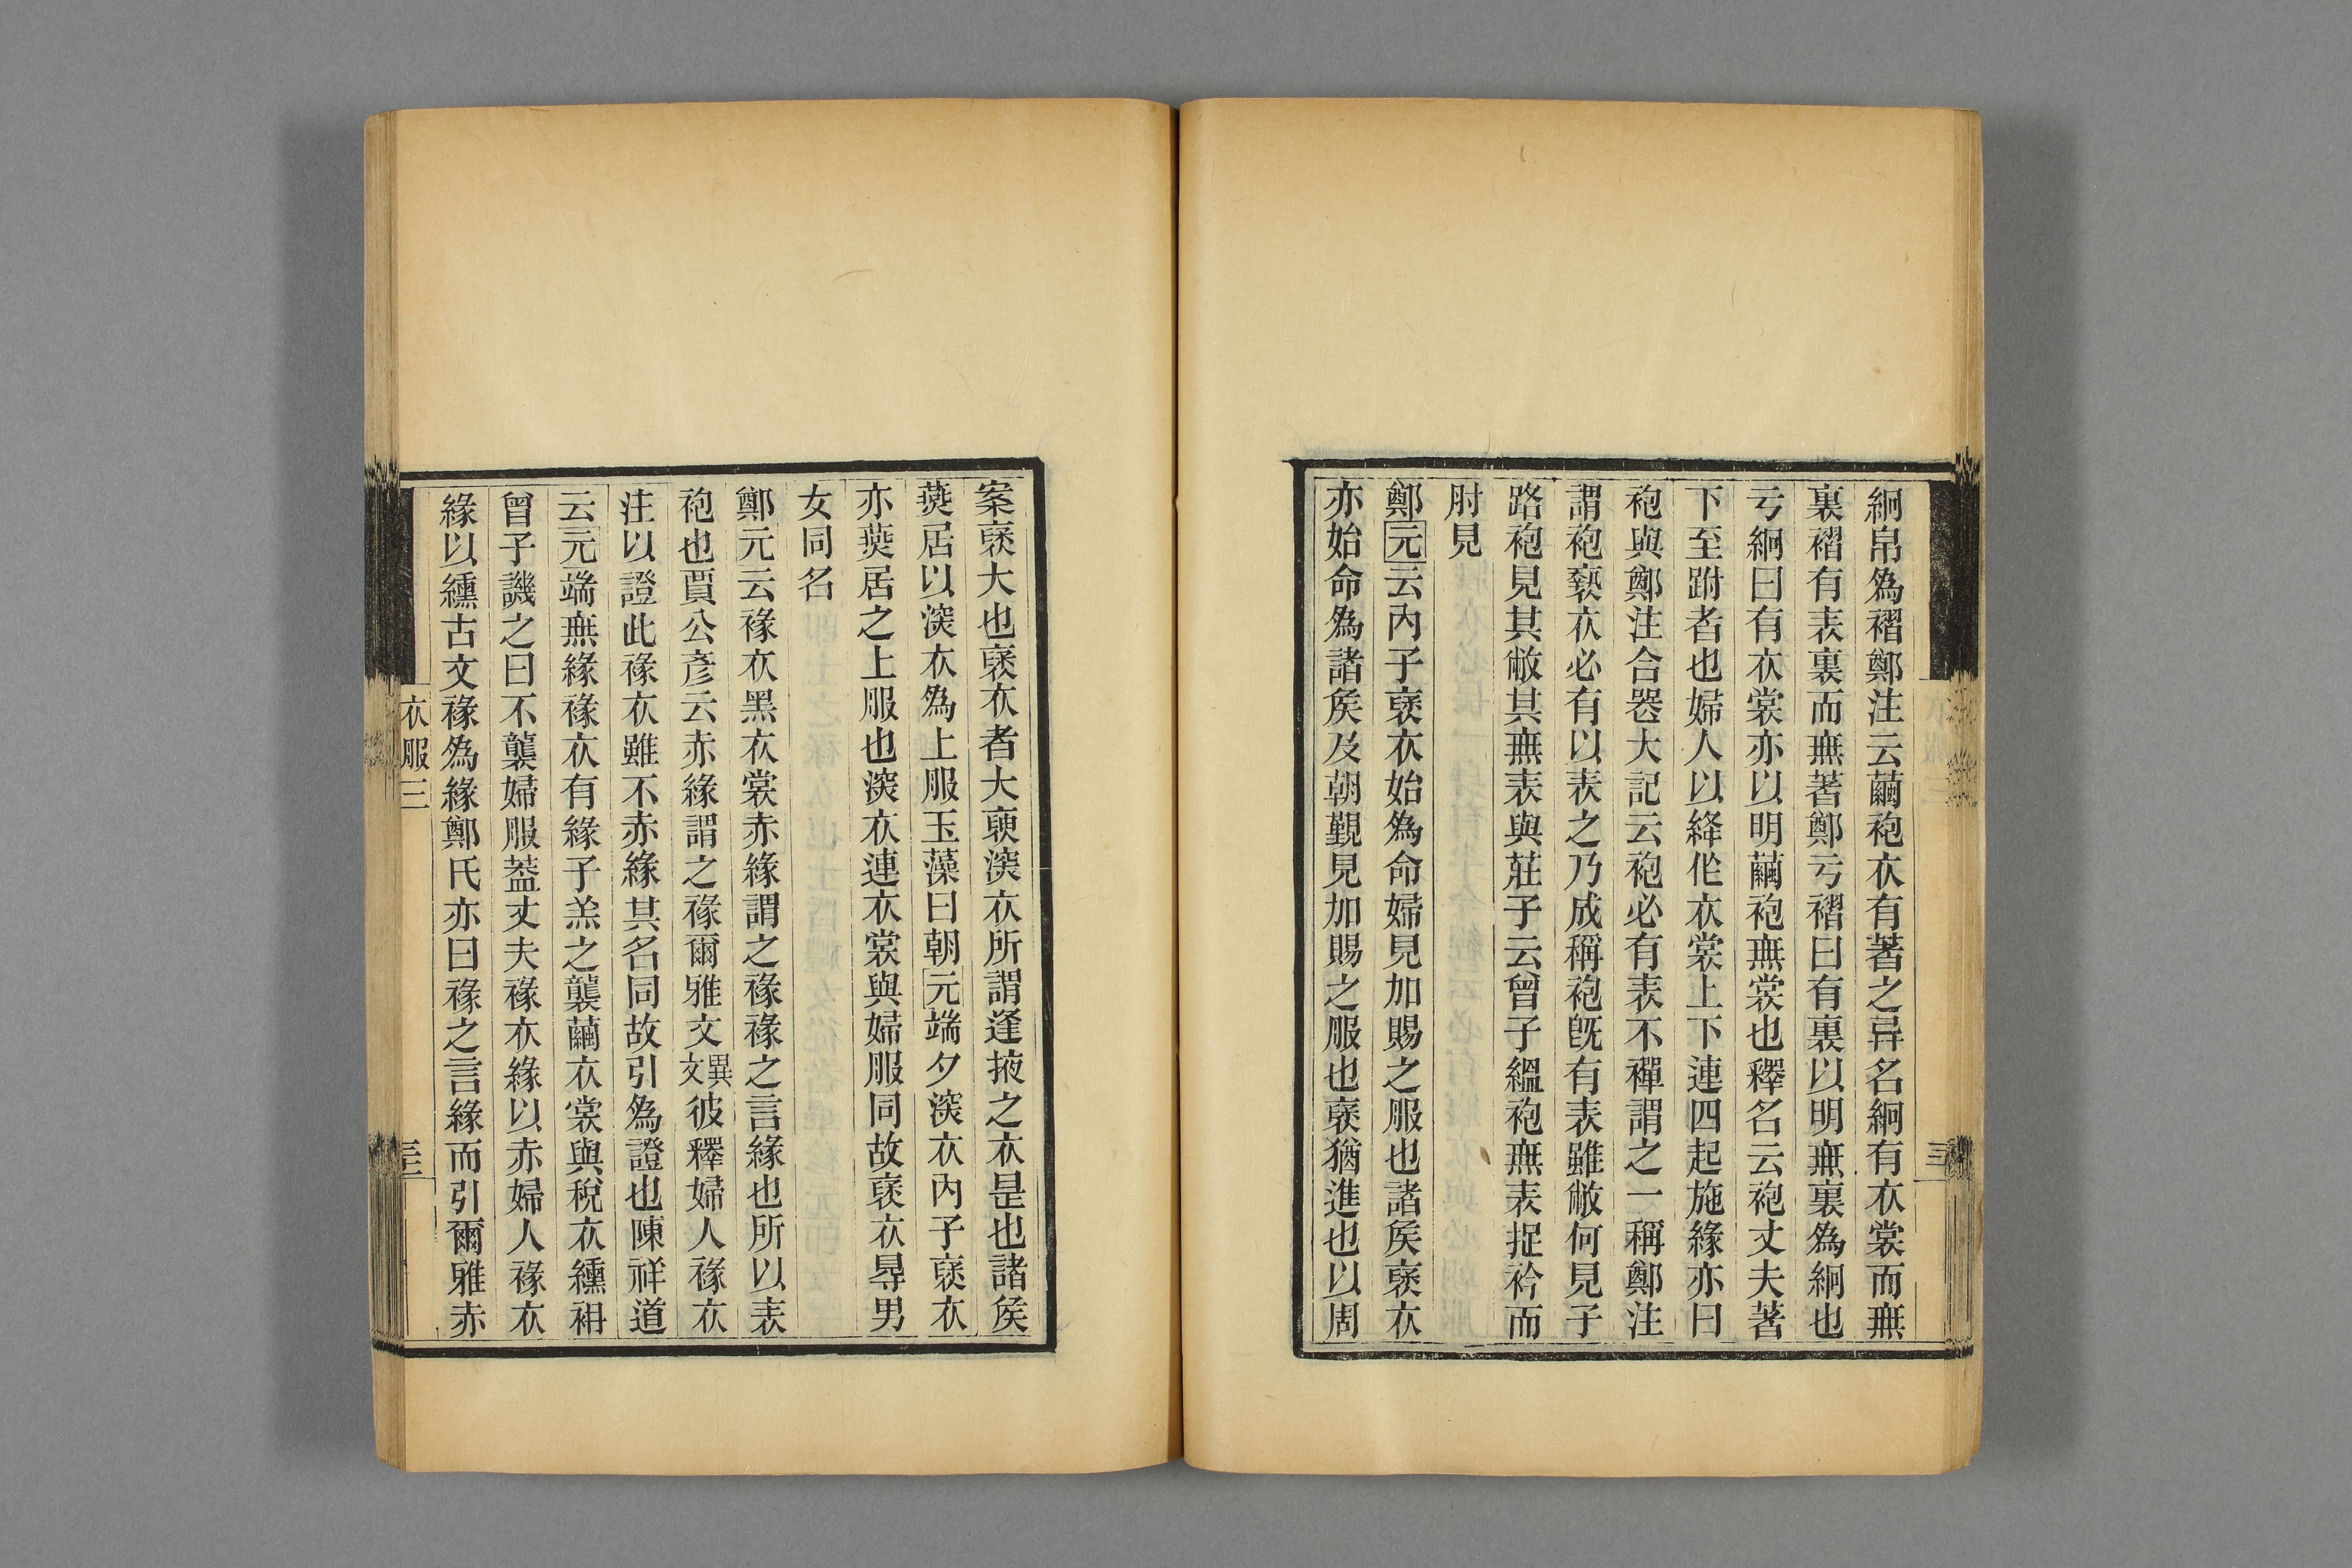 絅帛爲褶鄭注云繭袍衣有著之异名絅有衣裳而無
裏褶有表裏而無著鄭亏褶曰有裏以明無裏爲絅也
亏絅曰有衣裳亦以明繭袍無裳也釋名云袍丈夫著
下至跗者也婦人以絳作衣裳上下連四起施緣亦曰
袍與鄭注合喪大記云袍必有表不襌謂之一稱鄭注
謂袍褻衣必有以表之乃成稱袍旣有表雖敝何見子
路袍見其敝其無表與莊子云曾子縕袍無表捉衿而
肘見
鄭元云內子褎衣始爲命婦見加賜之服也諸矦褎衣
亦始命爲諸矦及朝覲見加賜之服也褎猶進也以周
案褎大也褎衣者大耎深衣所謂逢掖之衣是也諸矦
燕居以深衣爲上服玉藻曰朝元端夕深衣內子褎衣
亦燕居之上服也深衣連衣裳與婦服同故褎衣㝵男
女同名
鄭元云褖衣黑衣裳赤緣謂之褖褖之言緣也所以表
袍也賈公彥云赤緣謂之褖爾雅文異文彼釋婦人褖衣
注以證此褖衣雖不赤緣其名同故引爲證也陳祥道
云元端無緣褖衣有緣子羔之襲繭衣裳與稅衣纁袡
曾子譏之曰不襲婦服葢丈夫褖衣緣以赤婦人褖衣
緣以纁古文褖爲緣鄭氏亦曰褖之言緣而引爾雅赤
衣服三